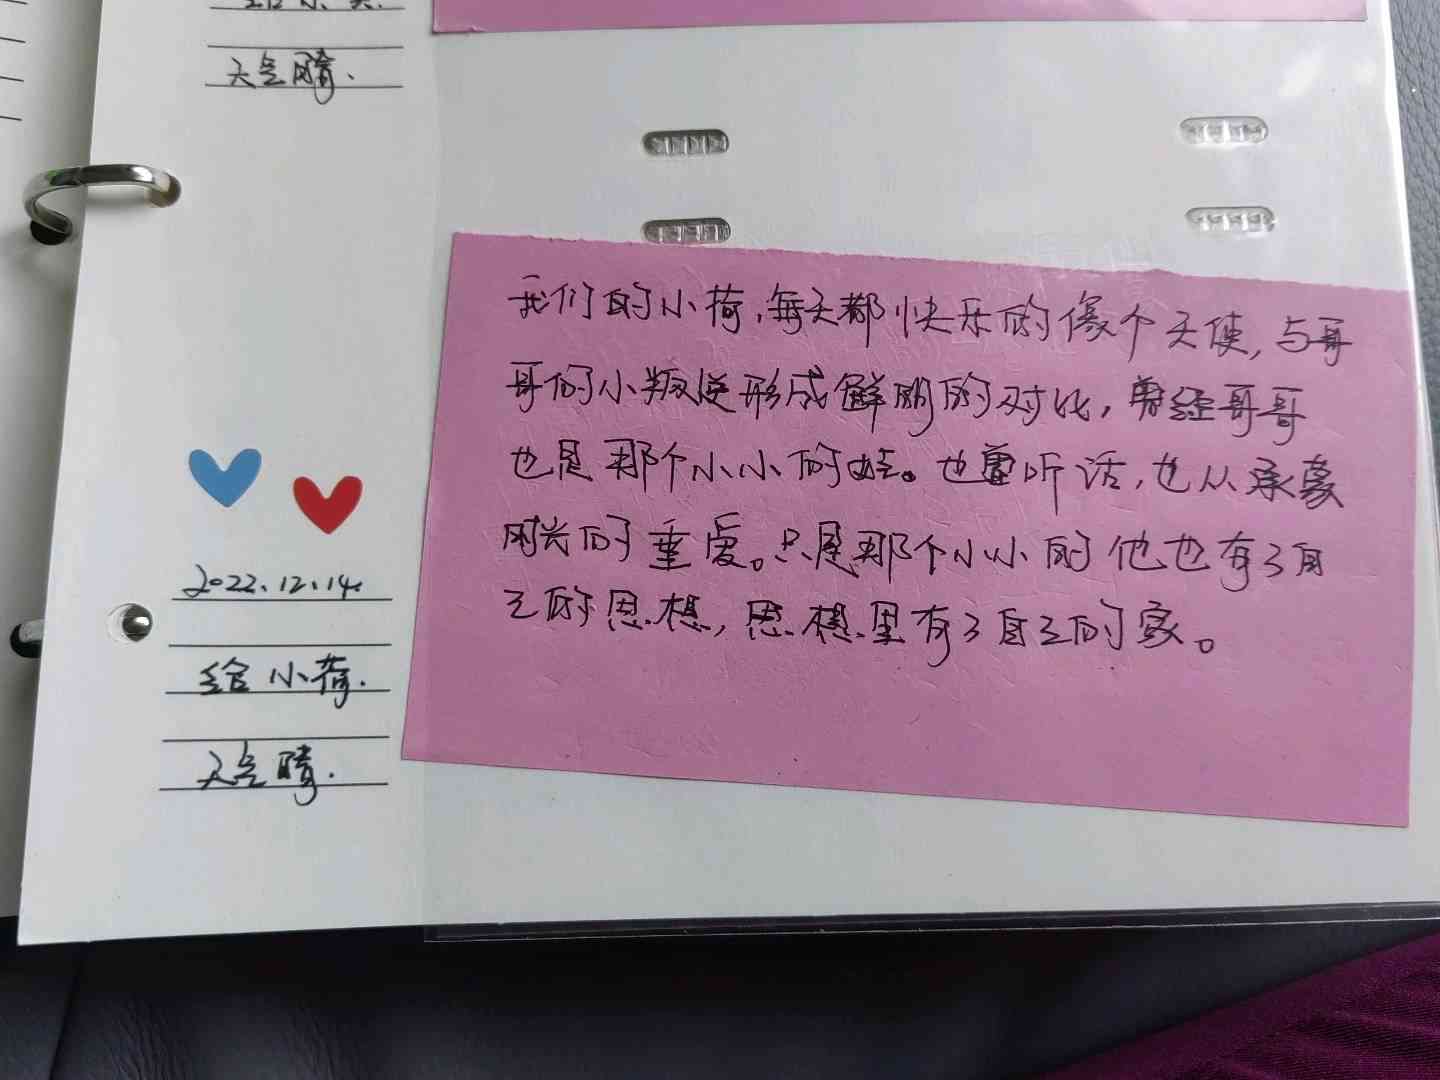 天气晴.
我们的小荷,每天都快乐的像个天使,与哥
哥的小叛逆形成鲜明的对比,曾经哥哥
也是那个小小的娃。也曾听话,也从承蒙
时光的重爱。只是那个小小的他也有了自
己的思想,思想里有了自己的家。
2022.12.14.
给小荷.
天气晴.